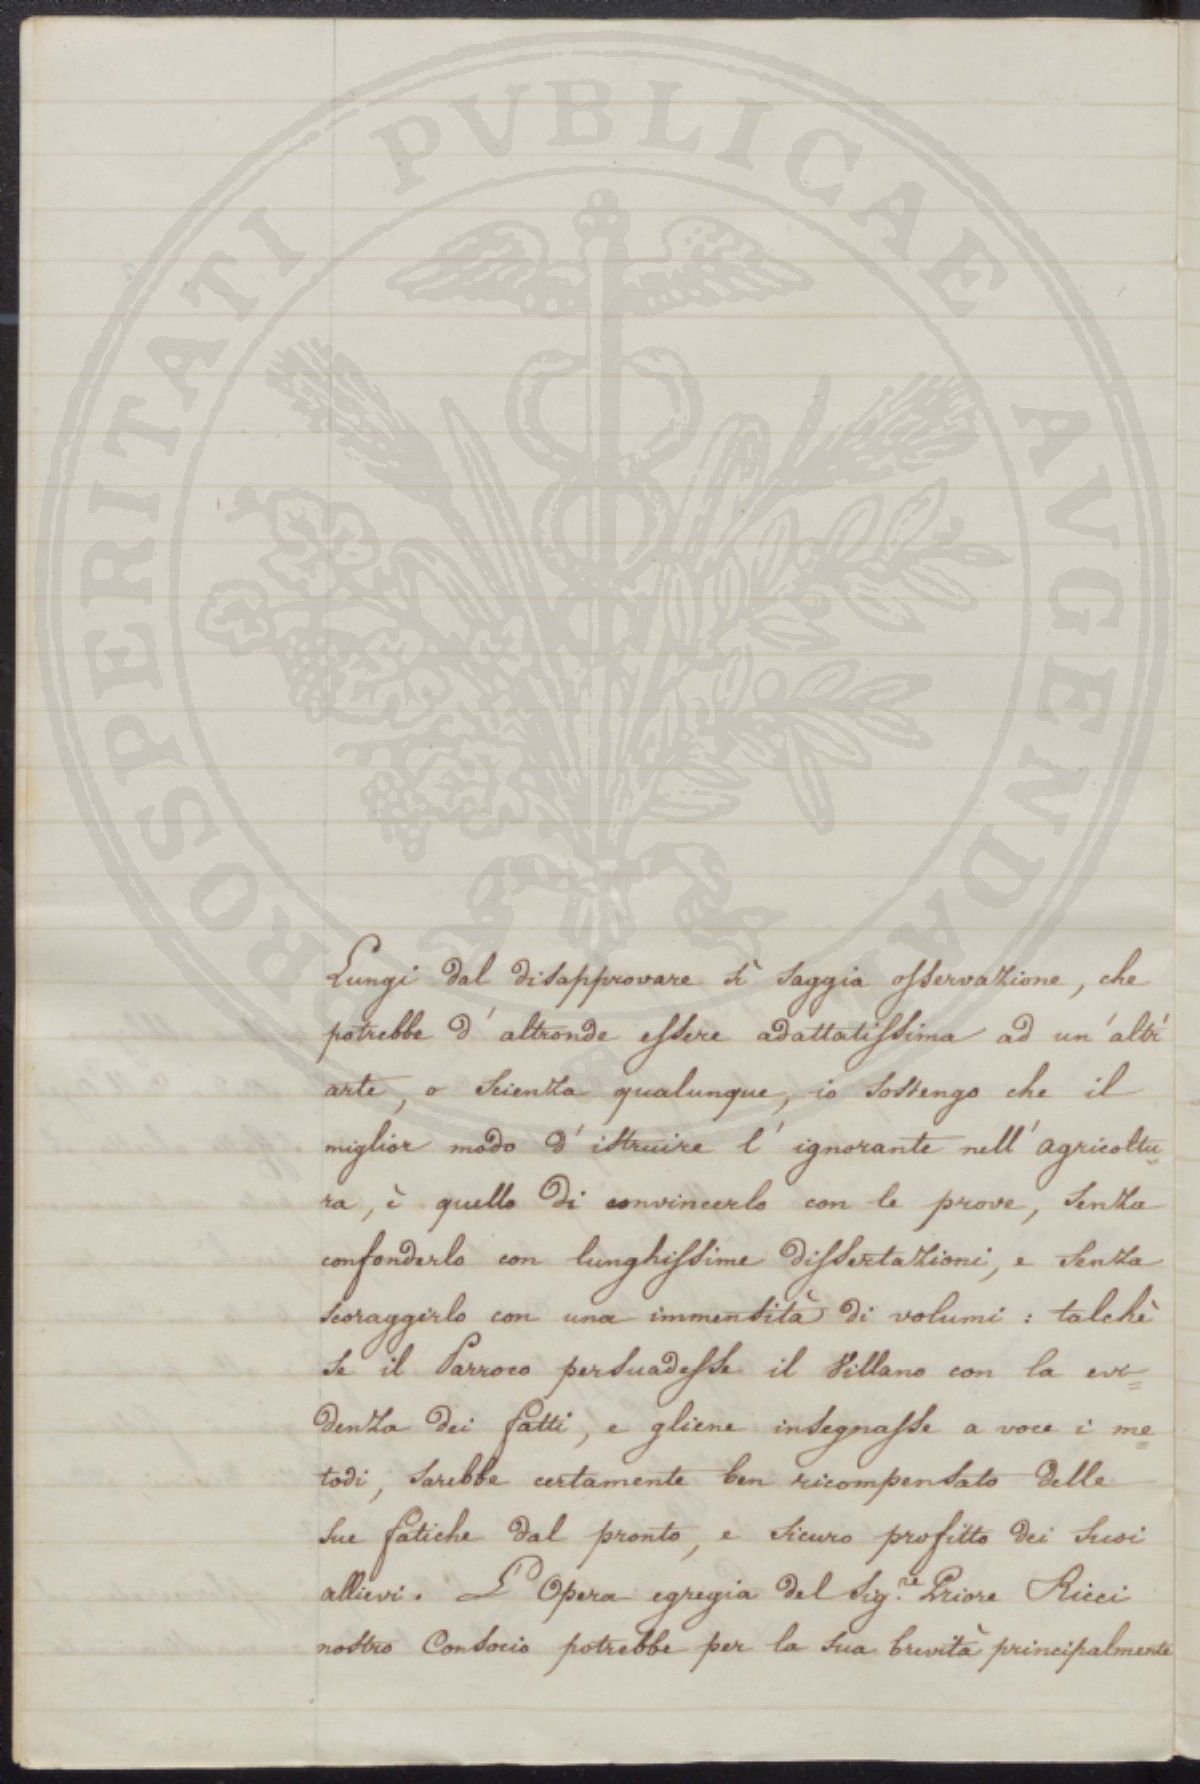 PROSPERITATI PVBLICAE AVGENDAE
Lungi dal disapprovare sì saggia osservazione, che
potrebbe d'altronde essere adattatissima ad un'altr'
arte, o scienza qualunque, io sostengo che il
miglior modo d'istruire l'ignorante nell'agricoltu=
ra, è quello di convincerlo con le prove, senza
confonderlo con lunghissime dissertazioni, e senza
scoraggirlo con una immensità di volumi : talchè
se il Parroco persuadesse il Villano con la evi=
denza dei fatti, e gliene insegnasse a voce i me=
todi, sarebbe certamente ben ricompensato delle
sue fatiche dal pronto, e sicuro profitto dei suoi
allievi. L'Opera egregia del Sig.re Priore Ricci
nostro Consocio potrebbe per la sua brevità principalmente